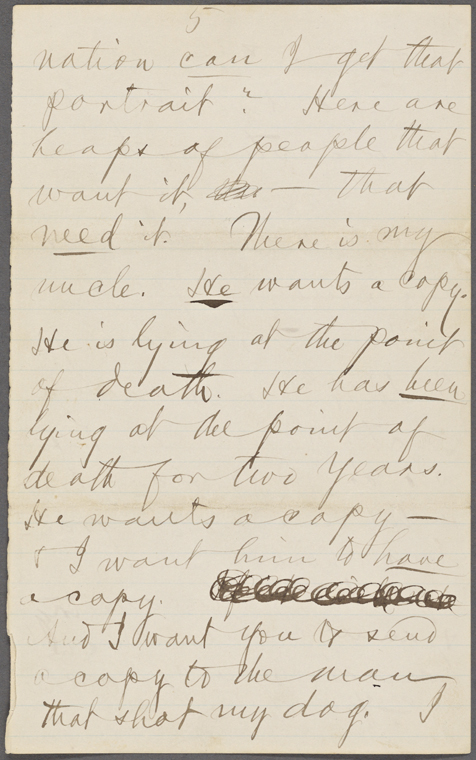 5
nation can I get that
portrait? Here are
heaps of people that
want it, — that
need it. There is my
uncle. He wants a copy.
He is lying at the point
of death. He has been
lying at the point of
death for two years.
He wants a copy —
& I want him to have
a copy.
And I want you to send
a copy to the man
that shot my dog. I